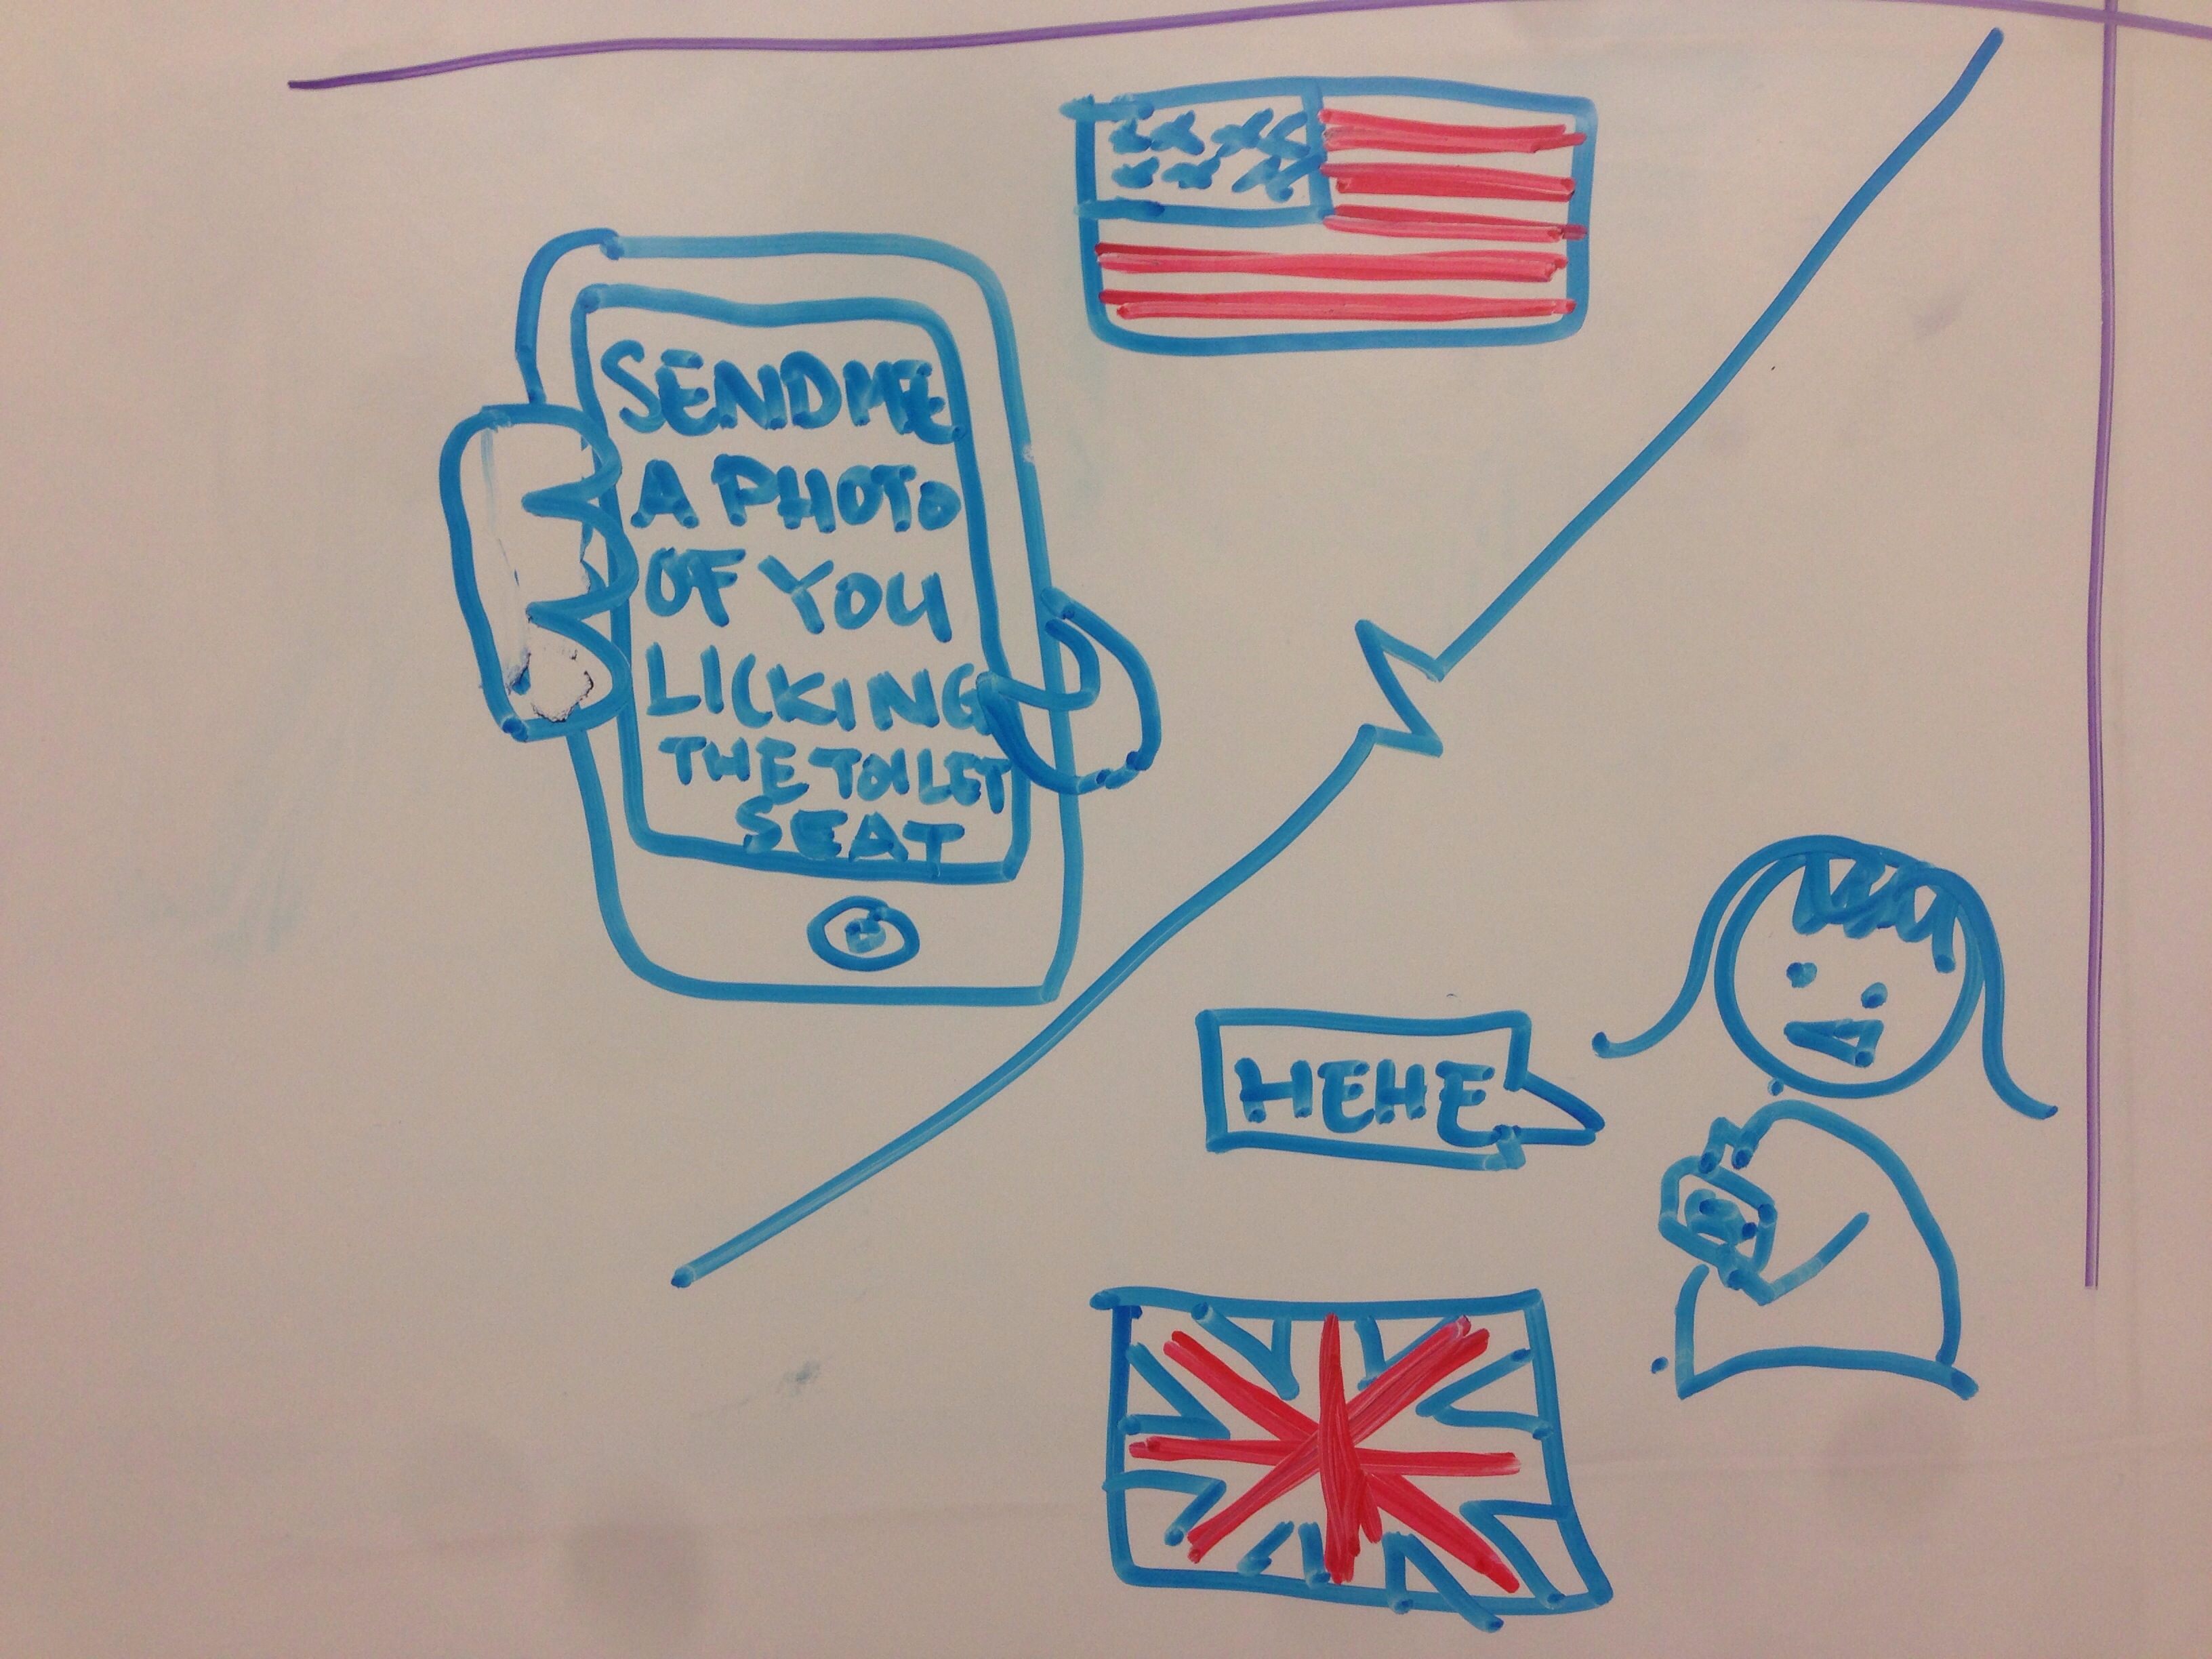 SEND ME
A PHOTO
OF YOU
LICKING
THE TOILET
SEAT
HEHE